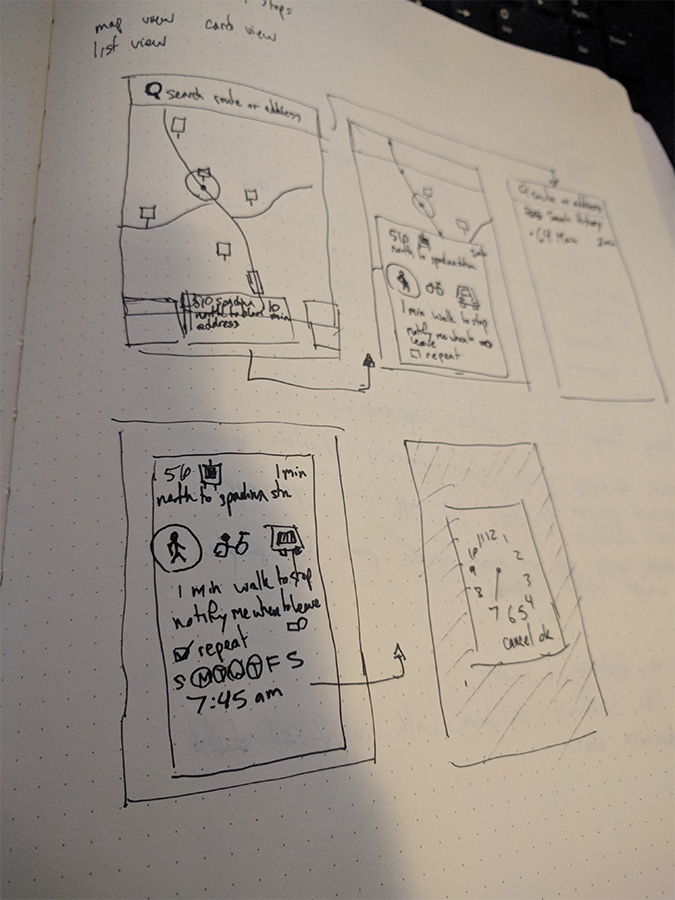 stops
map view card view
list view
search route or address
510 spadina 10
north to min
address
north to spadina
1 min walk to stop
notify me when to
leave
repeat
route or address
64 Main
510 1 min
north to spadina stn
1 min walk to stop
notify me when to leave
repeat
S M T W T F S
7:45 am
11 12 1
10 2
9 3
8 4
7 6 5
cancel ok